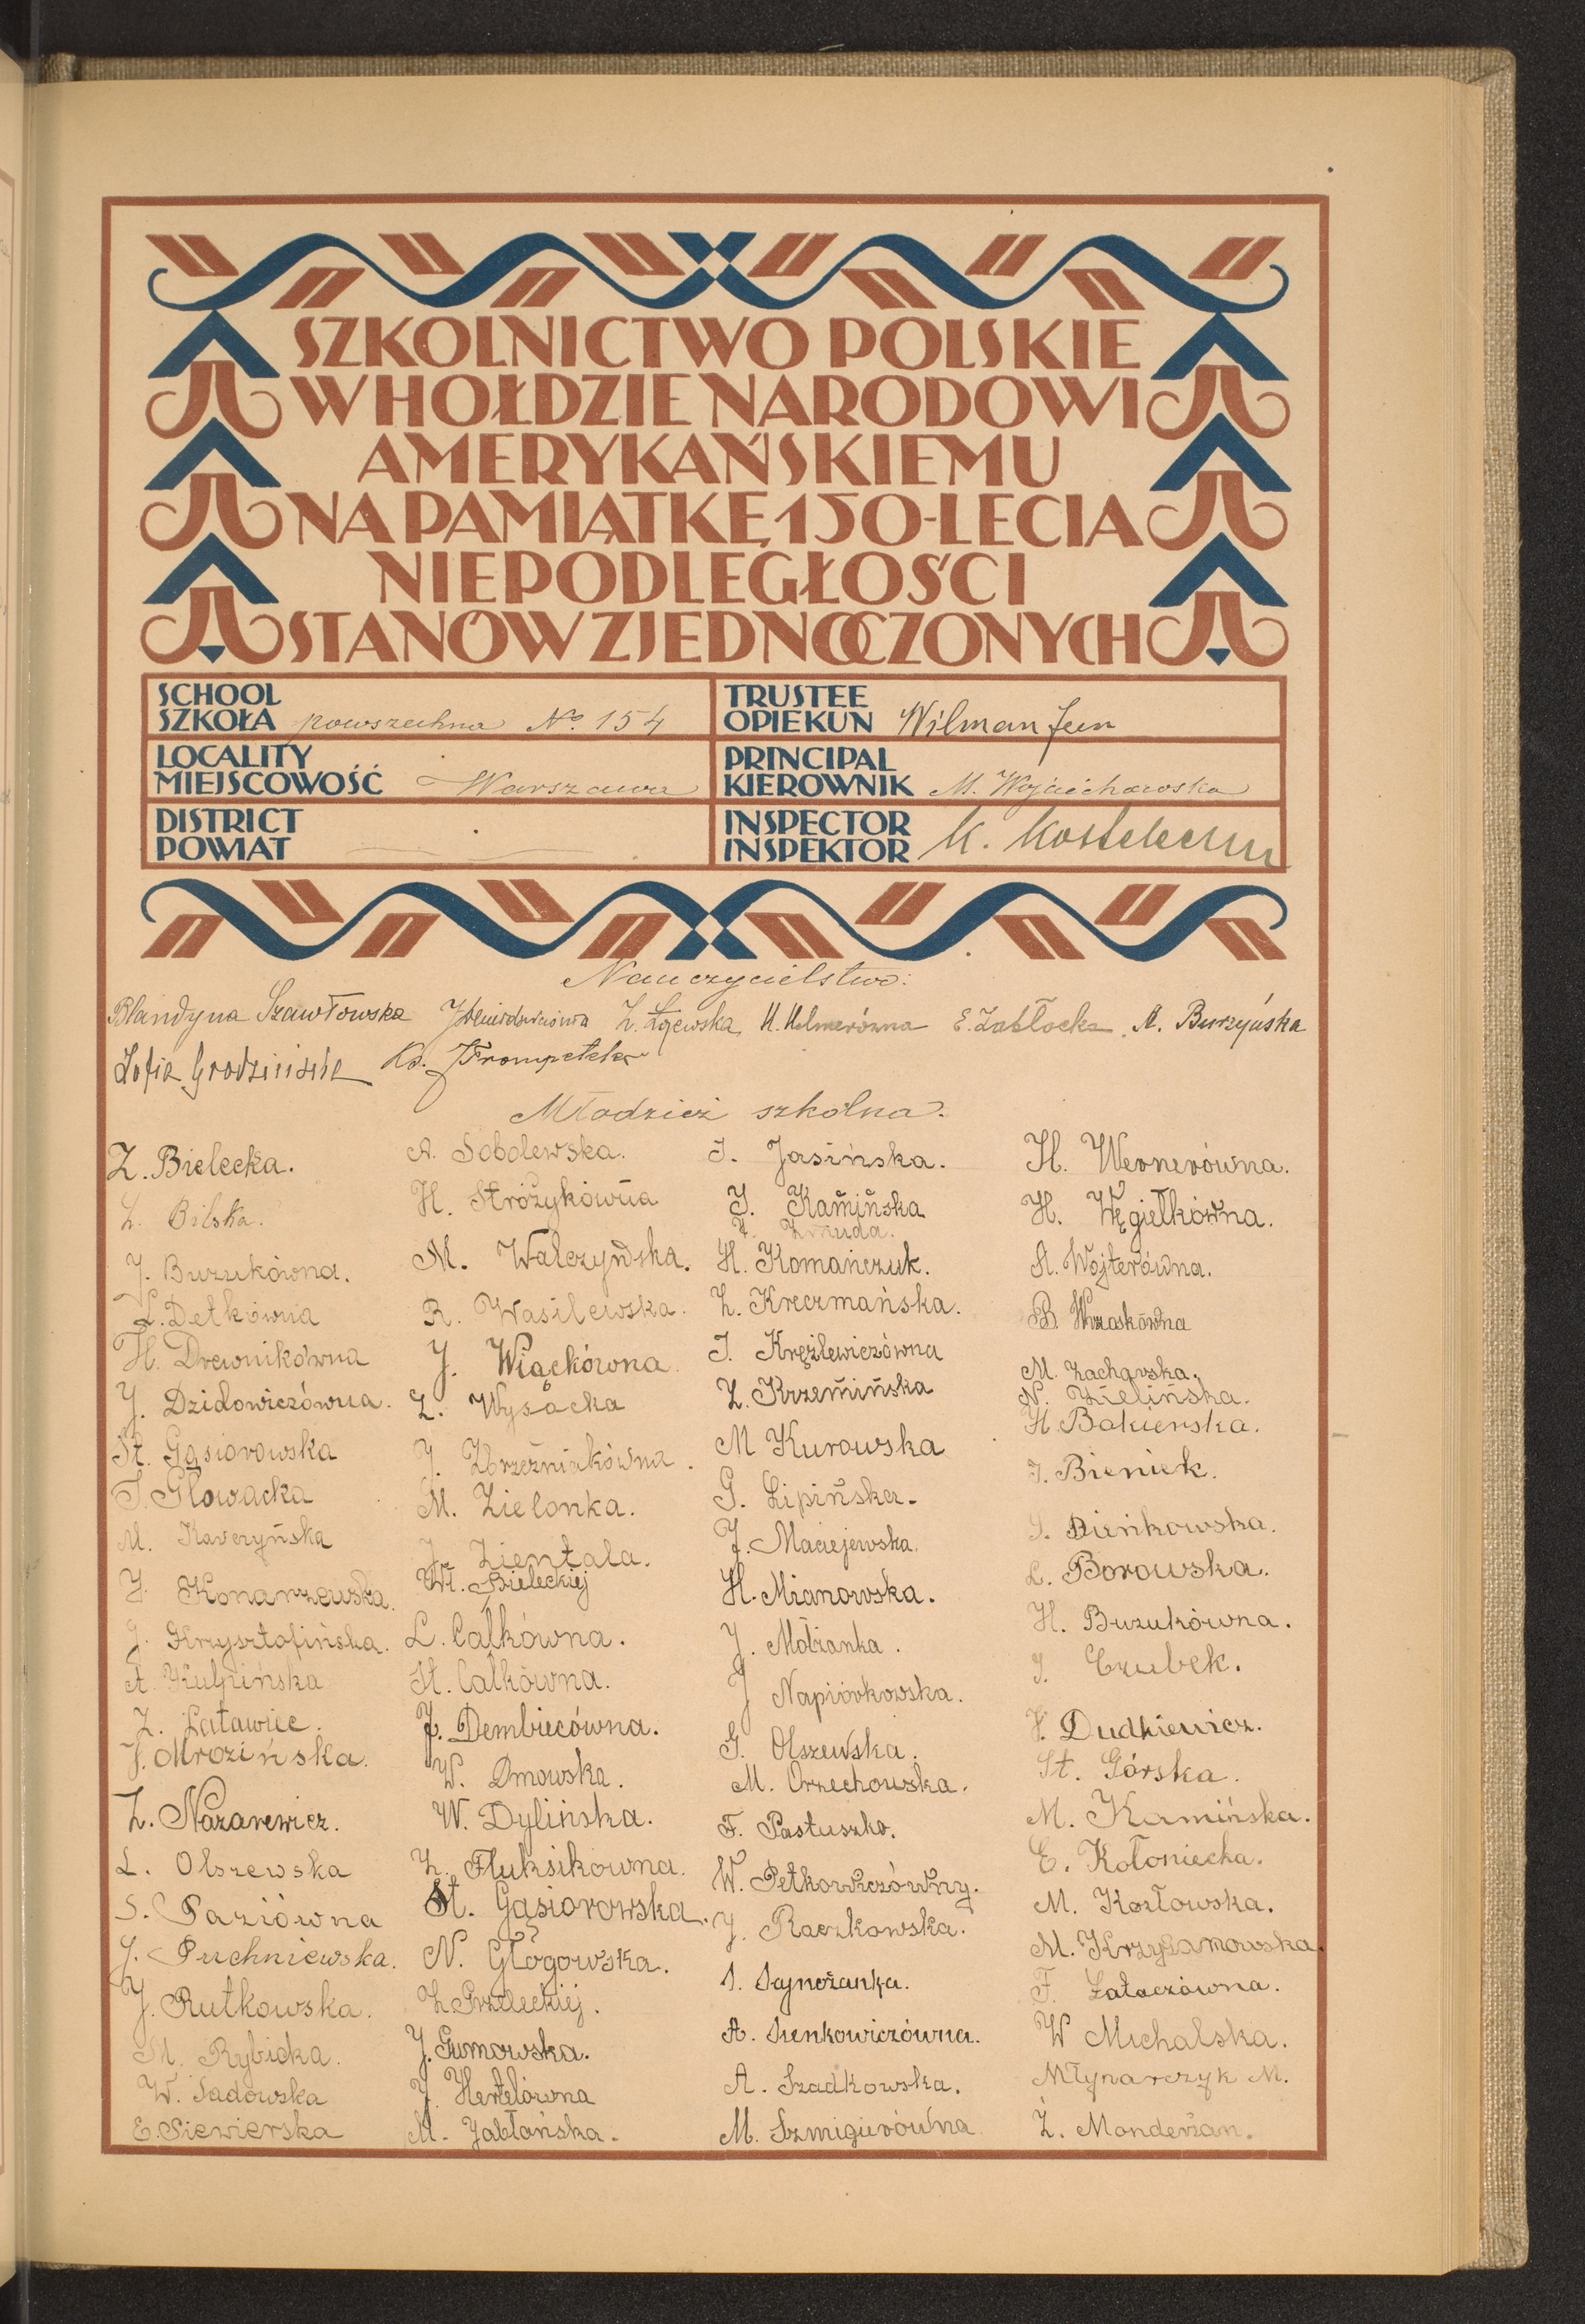 SZKOLNICTWO POLSKIE
W HOŁDZIE NARODOWI
AMERYKAŃSKIEMU
NA PAMIĄTKĘ 150-LECIA
NIEPODLEGŁOŚCI
STANÓW ZJEDNOCZONYCH
SCHOOL
SZKOŁA powszechna No 154
TRUSTEE
OPIEKUN Wilman Jan
LOCALITY
MIEJSCOWOŚĆ Warszawa
PRINCIPAL
KIEROWNIK M. Wojciechowska
DISTRICT
POWIAT
INSPECTOR
INSPEKTOR K.
Nauczycielstwo:
Blandyna Szawłowska Z. Łojewska H. Helmerówna E. Zabłocka A. Burzyńska
Zofia Grodzińska Ks. J Trompeteler
Młodzież szkolna.
Z. Bielecka.
Z. Bilska.
J. Buzukówna.
L. Detkówna
H. Drewnikówna
J. Dzidowiczówna.
St. Gąsiorowska
T. Głowacka
M. Kaverzyńska
J. Konarzewska.
J. Krzysztofińska.
A. Kulpińska
Z. Latawiec.
J. Mrozińska.
Z. Nazarewicz.
L. Olszewska
S. Paziówna
J. Puchniewska.
J. Rutkowska.
M. Rybicka.
W. Sadowska
E. Siewierska
A. Sobolewska.
H. Stróżykówna
M. Walczyńska.
R. Wasilewska.
J. Wiąckówna.
Z. Wysocka
J. Zbrzeźniakówna.
M. Zielonka.
J. Zientala.
Wł. Bieleckiej
L. Całkówna.
St. Całkówna.
J. Dembiecówna.
W. Dmowska.
W. Dylińska.
Z. Fluksikówna.
St. Gąsiorowska.
N. Głogowska.
Z.
J. Gumowska.
J. Hertelówna
M. Jabłońska.
J. Jasińska.
J. Kamińska
Z. Żmuda.
H. Komańczuk.
Z. Kreczmańska.
J. Krężlewiczówna
Z. Krzemińska
M Kurowska
G. Lipińska.
J. Maciejewska.
H. Mianowska.
J. Molżanka.
J Napiórkowska.
G. Olszewska.
M. Orzechowska.
F. Pastuszko.
W. Petkowiczówny.
J. Raczkowska.
S. Sagnożanka.
A. Sienkowiczówna.
A. Szadkowska.
M. Szmigierówna
H. Wernerówna.
H. Węgiełkówna.
A. Wojterówna.
B. Wrzoskówna
M. Zacharska.
N. Zielińska.
H. Bakierska.
J. Bieniek.
S. Bieńkowska.
L. Borowska.
H. Buzukówna.
J. Czubek.
H. Dudkiewicz.
St. Górska.
M. Kamińska.
E. Kołoniecka.
M. Kozłowska.
M. Krzyżanowska.
F. Łataczówna.
W Michalska.
Młynarczyk M.
Z. Monderżan.